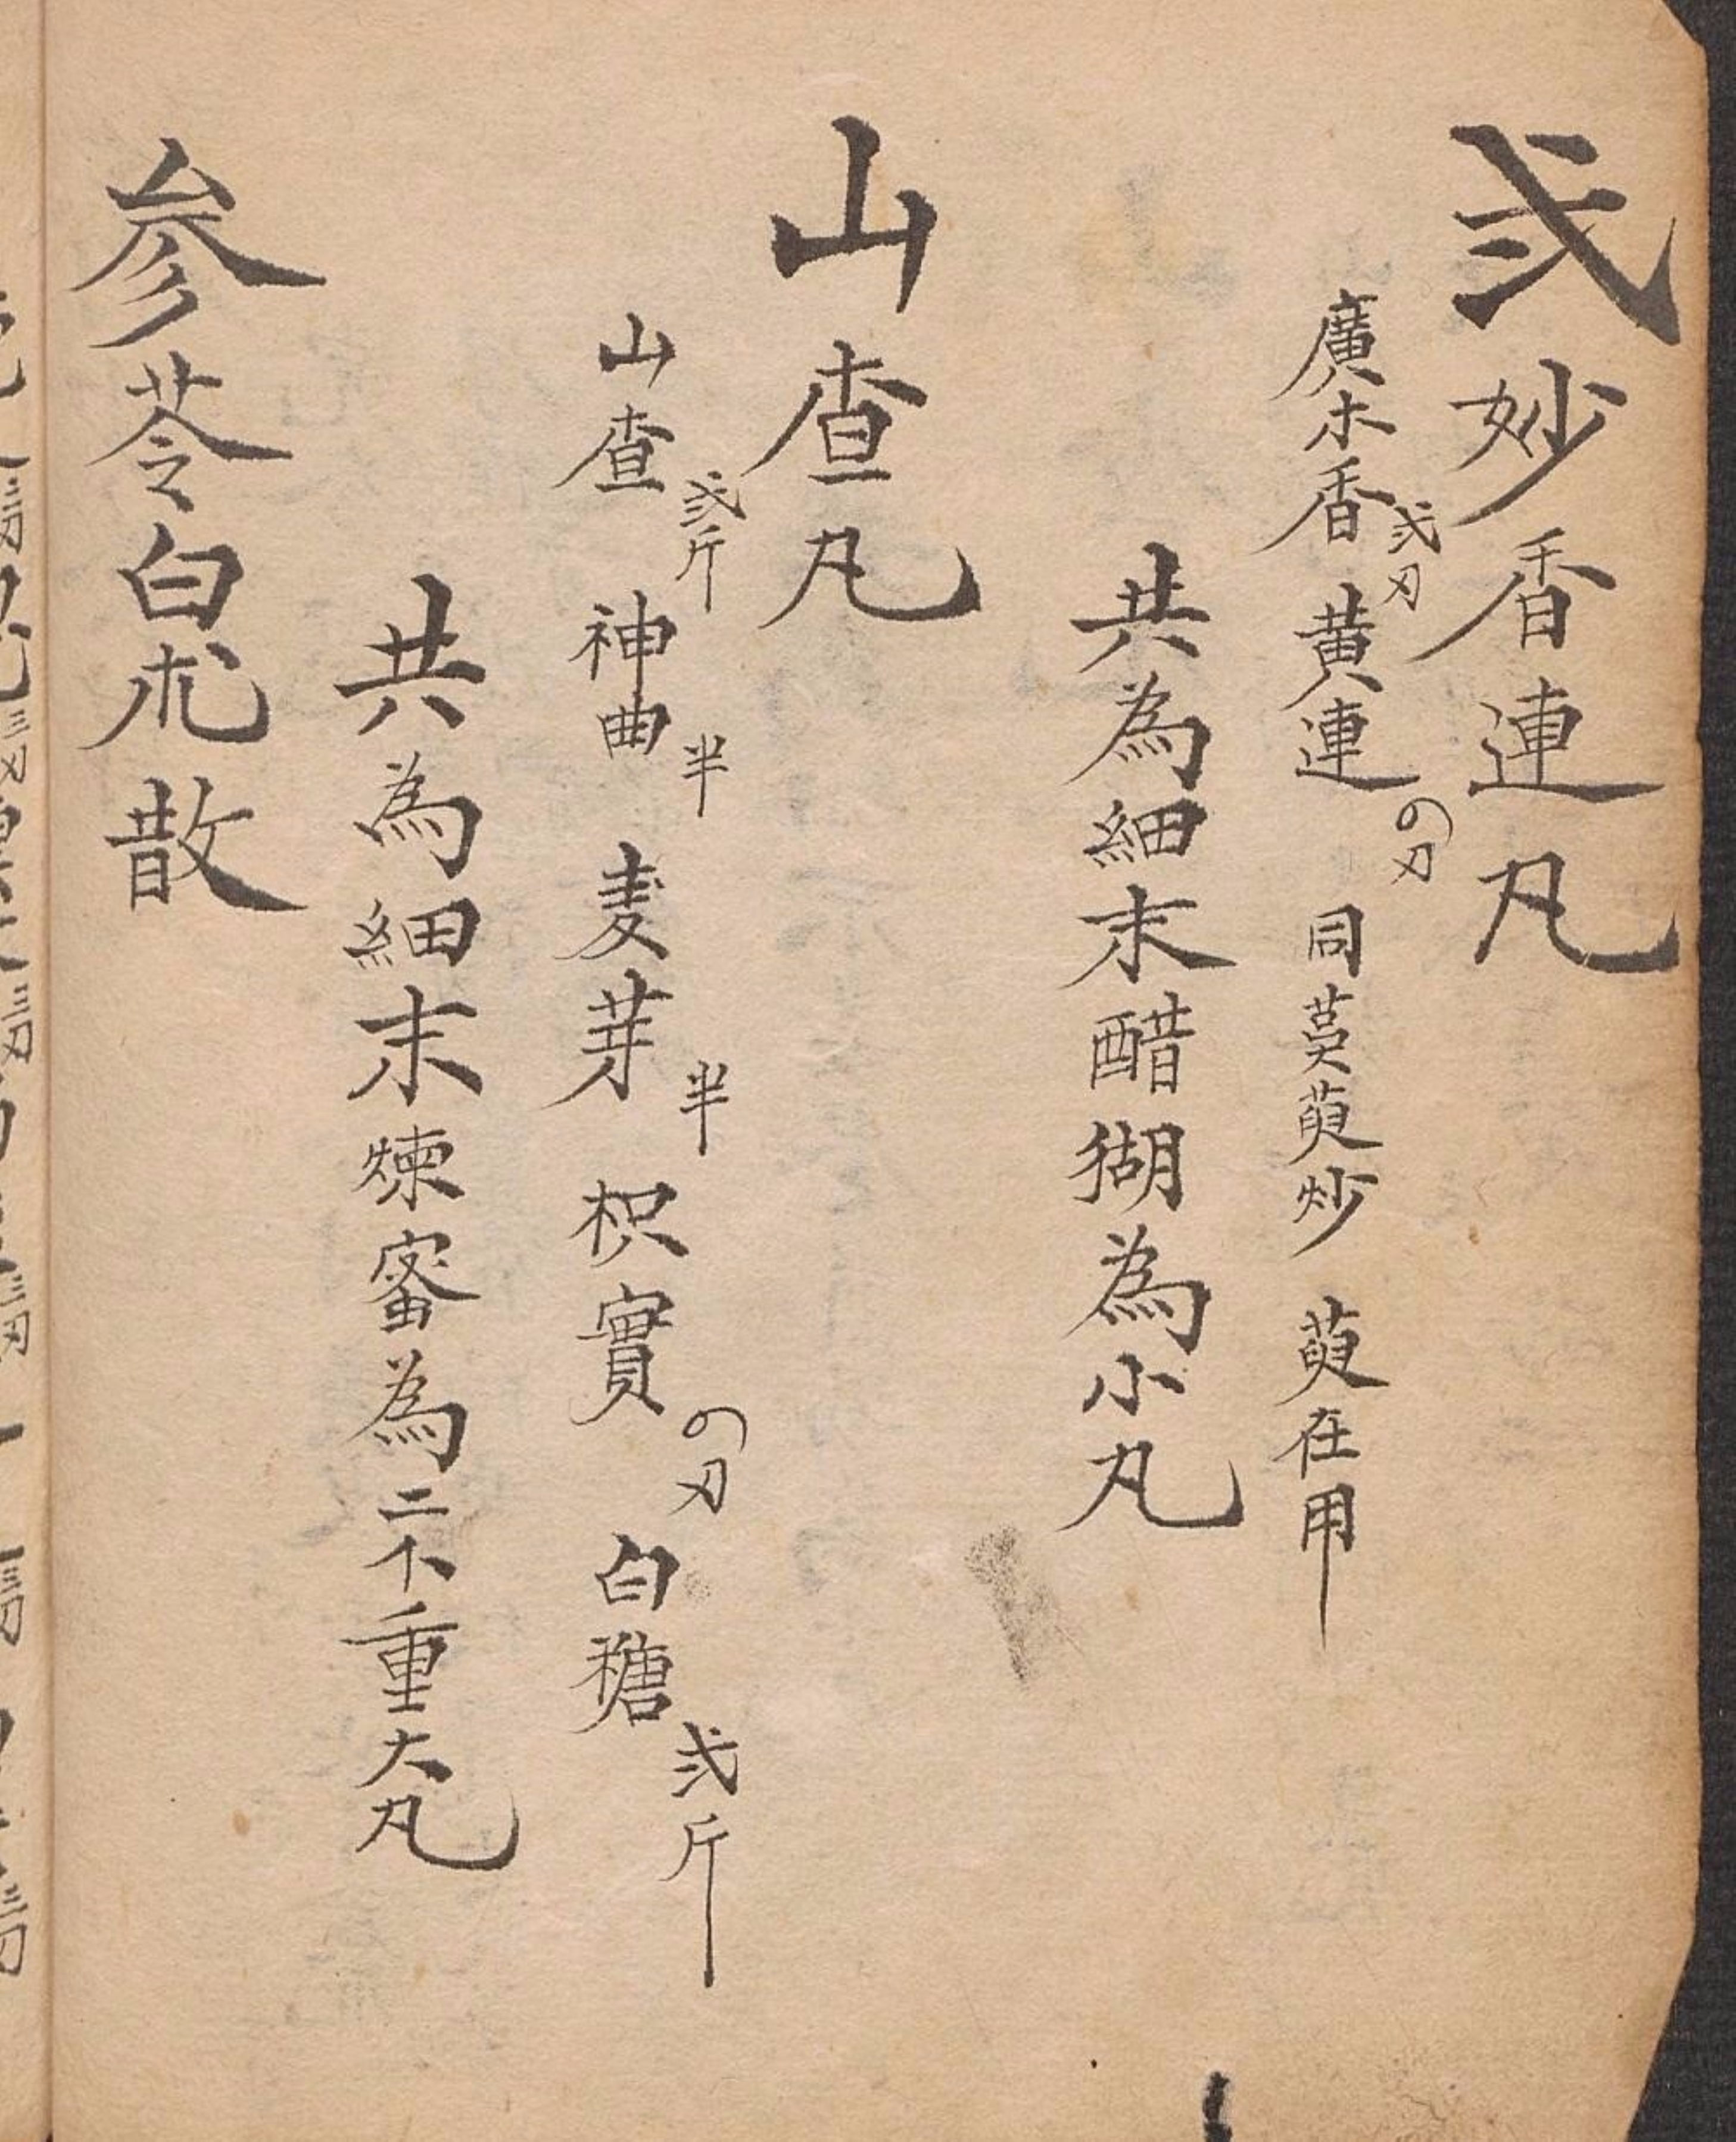 弍妙香連丸
廣木香弍刄 黄連 刄 同萸萸炒 萸在用
共為細末醋猢為小丸
山查丸
山查弍斤 神曲半 麦芽半 枳實 刄 白糖弍斤
共為細末煉蜜為二不重大丸
参苓白朮散